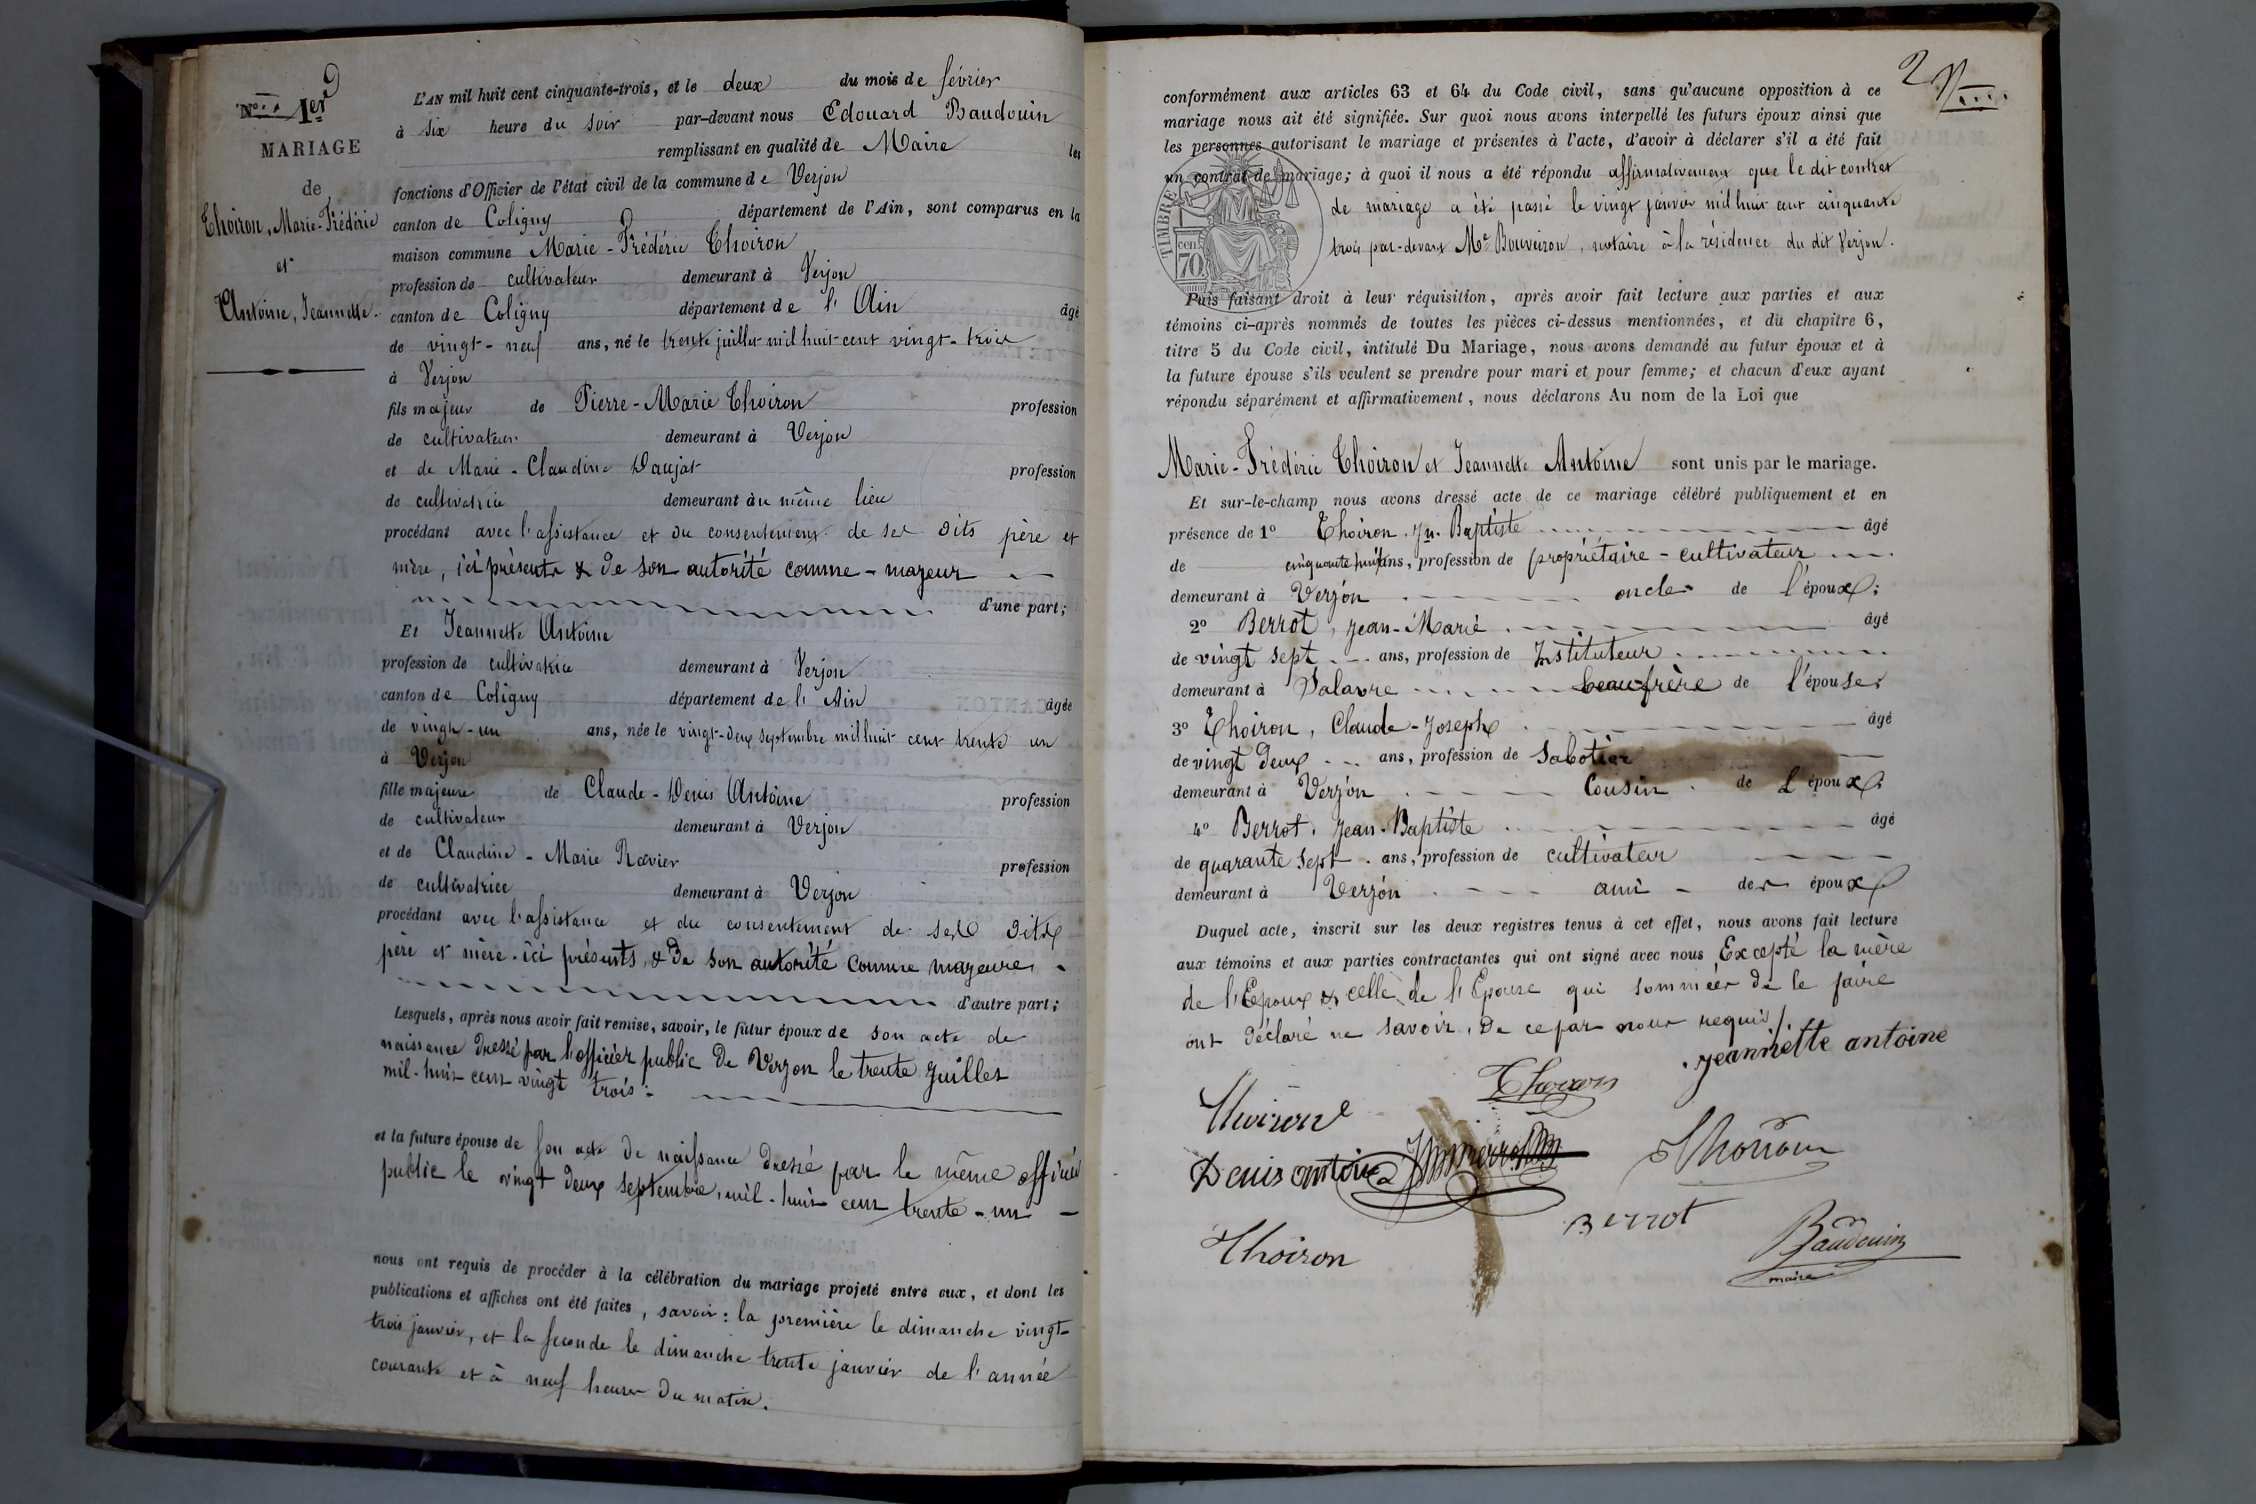 Nos 1er
MARIAGE
de
Thoiron, Marie-Frédéric
et
Antoine, Jeannette.
L'AN mil huit cent cinquante-trois, et le deux du mois de février
à six heure du soir par-devant nous Edouard Baudouin
remplissant en qualité de Maire les
fonctions d'Officier de l'état civil de la commune de Verjon
canton de Coligny département de l'Ain, sont comparus en la
maison commune Marie-Frédéric Thoiron
profession de cultivateur demeurant à Verjon
canton de Coligny département de l'Ain âgé
de vingt-neuf ans, né le trente juillet mil huit cent vingt-trois
à Verjon
fils majeur de Pierre-Marie Thoiron profession
de cultivateur demeurant à Verjon
et de Marie-Claudine Daujat profession
de cultivatrice demeurant à au même lieu
procédant avec l'assistance et du consentement de ses dits père et
mère, ici présents & de son autorité comme-majeur
d'une part;
Et Jeannette Antoine
profession de cultivatrice demeurant à Verjon
canton de Coligny département de l'Ain âgée
de vingt-un ans, née le vingt-deux septembre mil huit cent trente un
à Verjon
fille majeure de Claude-Denis Antoine profession
de cultivateur demeurant à Verjon
et de Claudine-Marie Ravier profession
de cultivatrice demeurant à Verjon
procédant avec l'assistance et du consentement de ses dits
père et mère ici présents, & de son autorité comme majeure,
d'autre part;
Lesquels, après nous avoir fait remise, savoir, le futur époux de son acte de
naissance dressé par l'officier public de Verjon le trente Juillet
mil-huit cent vingt trois:
et la future épouse de son acte de naissance dressé par le même officier
public le vingt deux septembre, mil-huit cent trente-un
nous ont requis de procéder à la célébration du mariage projeté entre eux, et dont les
publications et affiches ont été faites, savoir: la première le dimanche vingt-
trois janvier, et la seconde le dimanche trente janvier de l'année
courante et à neuf heures du matin.
2
conformément aux articles 63 et 64 du Code civil, sans qu'aucune opposition à ce
mariage nous ait été signifiée. Sur quoi nous avons interpellé les futurs époux ainsi que
les personnes autorisant le mariage et présentes à l'acte, d'avoir à déclarer s'il a été fait
un contrat de mariage; à quoi il nous a été répondu affirmativement que le dit contrat
de mariage a été passé le vingt janvier mil huit cent cinquante
trois par-devant Me Bouveiron, notaire à la résidence du dit Verjon.
TIMBRE
cen
70
Puis faisant droit à leur réquisition, après avoir fait lecture aux parties et aux
témoins ci-après nommés de toutes les pièces ci-dessus mentionnées, et du chapitre 6,
titre 5 du Code civil, intitulé Du Mariage, nous avons demandé au futur époux et à
la future épouse s'ils veulent se prendre pour mari et pour femme; et chacun d'eux ayant
répondu séparément et affirmativement, nous déclarons Au nom de la Loi que
Marie-Frédéric Thoiron et Jeannette Antoine sont unis par le mariage.
Et sur-le-champ nous avons dressé acte de ce mariage célébré publiquement et en
présence de 1º Thoiron. Jn. Baptiste âgé
de cinquante huit ans, profession de propriétaire-cultivateur
demeurant à Verjon oncle de l'époux;
2º Berrot, Jean-Marie âgé
de vingt sept ans, profession de Instituteur
demeurant à Salavre beaufrère de l'épouse
3º Thoiron, Claude-Joseph âgé
de vingt deux ans, profession de Sabotier
demeurant à Verjon Cousin de L'époux
4º Berrot. Jean-Baptiste âgé
de quarante sept ans, profession de cultivateur
demeurant à Verjon ami des époux
Duquel acte, inscrit sur les deux registres tenus à cet effet, nous avons fait lecture
aux témoins et aux parties contractantes qui ont signé avec nous Excepté la mère
de l'Epoux & celle de l'Epouse qui sommées de le faire
ont déclaré ne savoir, de ce par nous requis
Jeannette antoine
Thoiron
Thoiron
Denis antoine
Thoiron
Berrot
Thoiron
Baudouin
maire